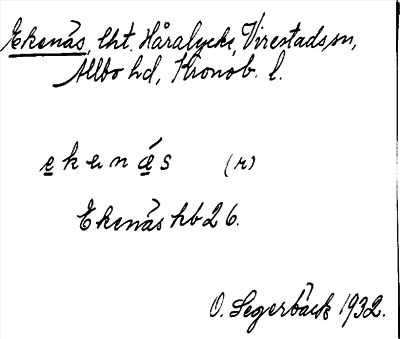 Ekenäs, lht. Håralycke, Virestads sn,
Allbo hd, Kronob. l.
e k e n ä́ s (r)
Ekenäs hb 26.
O. Segerbäck 1932.